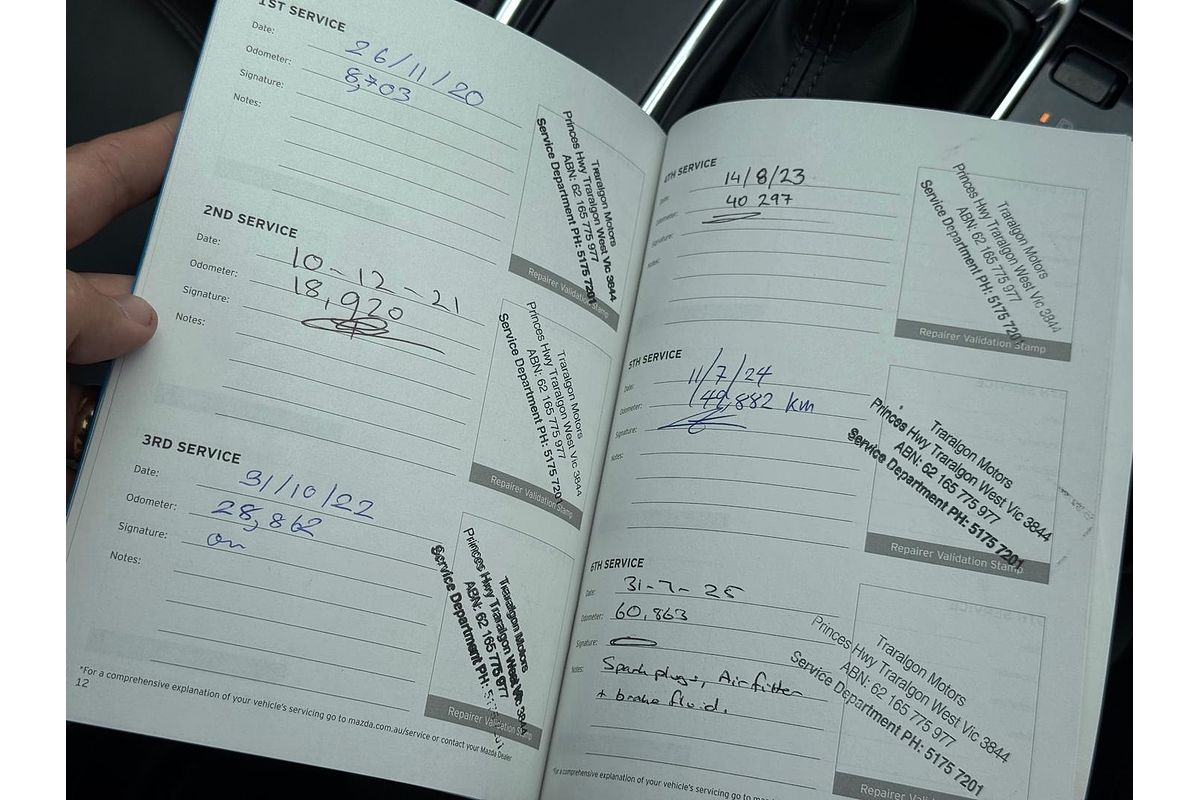 1ST SERVICE
Date: 26/11/20
Odometer: 8,703
Signature:
Notes:
Traralgon Motors
Princes Hwy Traralgon West Vic 3844
ABN: 62 165 775 977
Service Department PH: 5175 7201
Repairer Validation Stamp
2ND SERVICE
Date: 10-12-21
Odometer: 18,920
Signature:
Notes:
Traralgon Motors
Princes Hwy Traralgon West Vic 3844
ABN: 62 165 775 977
Service Department PH: 5175 7201
Repairer Validation Stamp
3RD SERVICE
Date: 31/10/22
Odometer: 28,862
Signature:
Notes:
Traralgon Motors
Princes Hwy Traralgon West Vic 3844
ABN: 62 165 775 977
Service Department PH:
Repairer Validation Stamp
*For a comprehensive explanation of your vehicle's servicing go to mazda.com.au/service or contact your Mazda Dealer
12
4TH SERVICE
Date: 14/8/23
Odometer: 40 297
Signature:
Notes:
Traralgon Motors
Princes Hwy Traralgon West Vic 3844
ABN: 62 165 775 977
Service Department PH: 5175 7201
Repairer Validation Stamp
5TH SERVICE
Date: 11/7/24
Odometer: 49,882 km
Signature:
Notes:
Traralgon Motors
Princes Hwy Traralgon West Vic 3844
ABN: 62 165 775 977
Service Department PH: 5175 7201
Repairer Validation Stamp
6TH SERVICE
Date: 31-7-25
Odometer: 60,863
Signature:
Notes: Spark plugs, Air filter
+ brake fluid.
Traralgon Motors
Princes Hwy Traralgon West Vic 3844
ABN: 62 165 775 977
Service Department PH: 5175 7201
Repairer Validation
*For a comprehensive explanation of your vehicle's servicing go to mazda.com.au/service or contact your Mazda